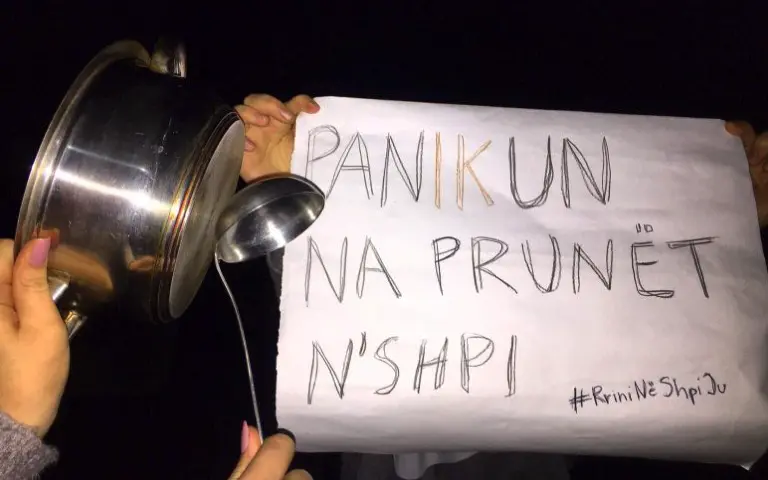 PANIKUN
NA PRUNËT
N'SHPI
#RriniNëShpiJu